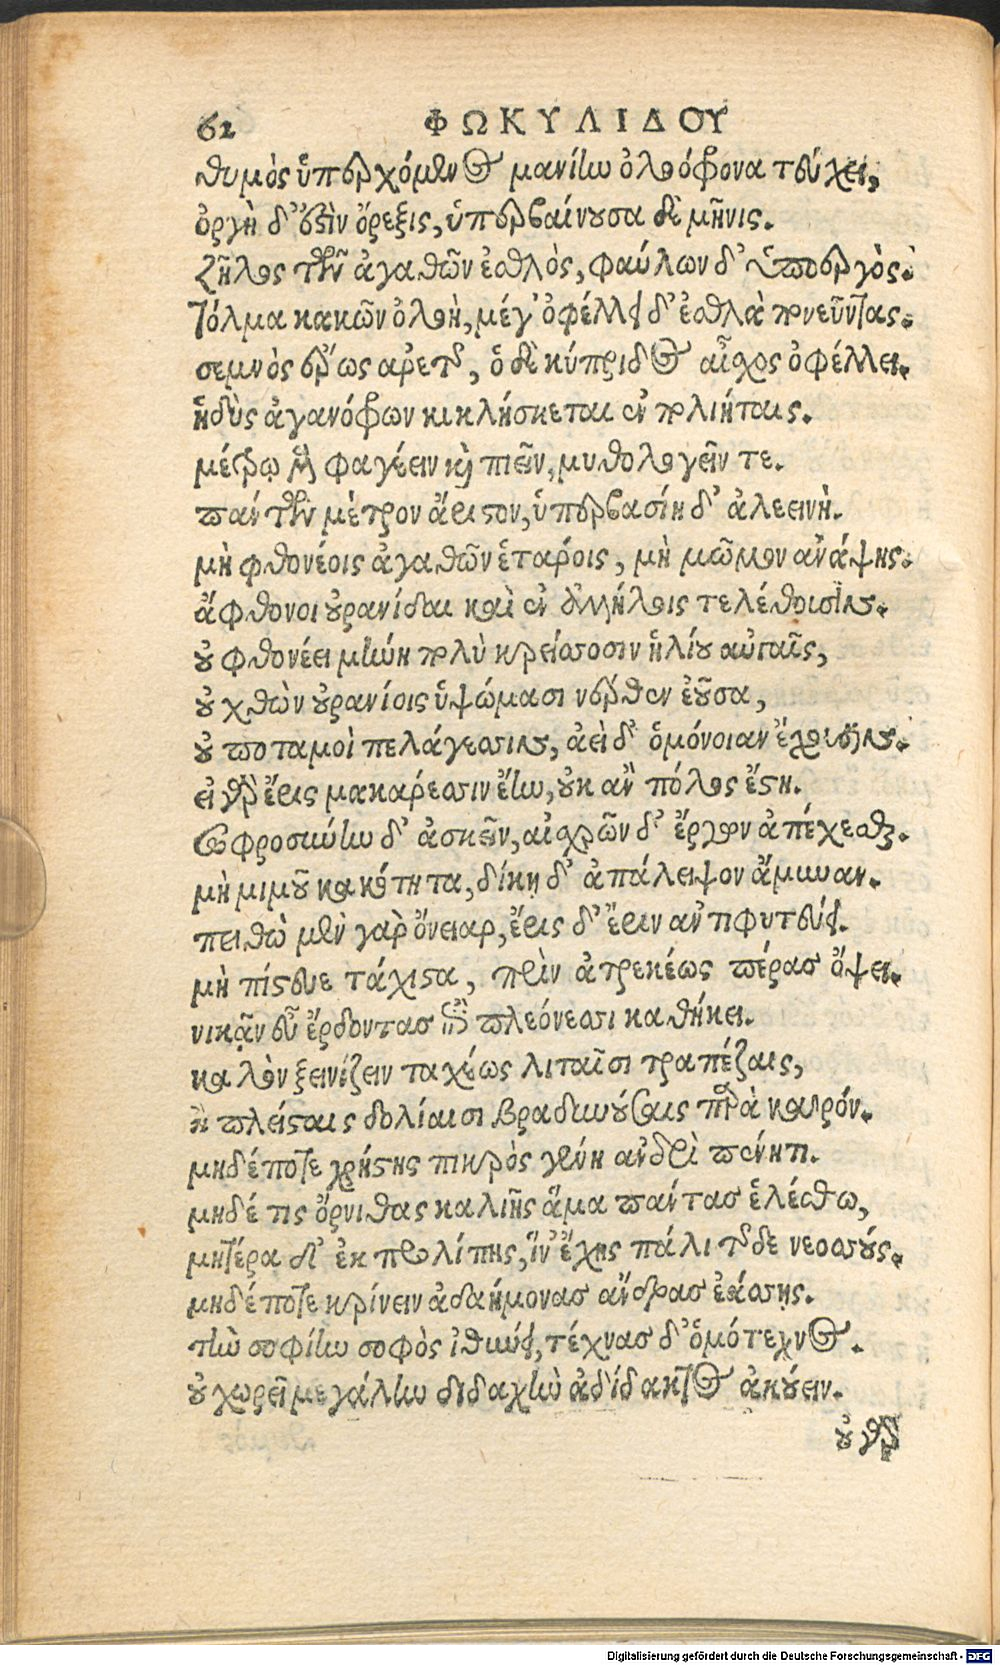 62 ΦΩΚΥΛΙΔΟΥ
θυμὸς ὑπερχόμενος μανίην ὀλοόφρονα τεύχει,
ὀργὴ δ᾽ ἐστὶν ὄρεξις, ὑπερβαίνουσα δὲ μῆνις.
ζῆλος τῶν ἀγαθῶν ἐσθλὸς, φαύλων δ᾽ ὑπέρογκος.
τόλμα κακῶν ὀλοὴ, μέγ᾽ ὀφέλλει δ᾽ ἐσθλὰ πονεῦντας.
σεμνὸς ἔρως ἀρετῆς, ὁ δὲ κύπριδος αἶσχος ὀφέλλει.
ἡδὺς ἀγανόφρων κικλήσκεται ἐν πολιήταις.
μέτρῳ μὲν φαγέειν καὶ πιεῖν, μυθολογεῖν τε.
πάντων μὲτρον ἄριστον, ὑπερβασίη δ᾽ ἀλεεινὴ.
μὴ φθονέοις ἀγαθῶν ἑτάροις, μὴ μῶμον ἀνάψῃς.
ἄφθονοι οὐρανίδαι καὶ ἐν ἀλλήλοις τελέθουσιν.
οὐ φθονέει μήνη πολὺ κρείσσοσιν ἡλίου αὐγαῖς,
οὐ χθὼν οὐρανίοις ὑψώμασι νέρθεν ἐοῦσα,
οὐ ποταμοὶ πελάγεσσιν, ἀεὶ δ᾽ ὁμόνοιαν ἔχουσιν.
εἰ γὰρ ἔρις μακαρέσσιν ἔην, οὐκ ἂν πόλος ἔστη.
σωφροσύνην δ᾽ ἀσκεῖν, αἰσχρῶν δ᾽ ἔργων ἀπέχεσθαι.
μὴ μιμοῦ κακότητα, δίκῃ δ᾽ ἀπόλειψον ἄμυναν.
πειθὼ μὲν γὰρ ὄνειαρ, ἔρις δ᾽ ἔριν ἀντιφυτεύει.
μὴ πίστευε τάχιστα, πρὶν ἀτρεκέως πέρας ὄψει.
νικᾷν εὖ ἔρδοντας ἐπὶ πλεόνεσσι καθήκει.
καλὸν ξεινίζειν ταχέως λιταῖσι τραπέζαις,
ἢ πλείσταις δολίαισι βραδυνούσαις παρὰ καιρόν.
μηδέποτε χρήστης πικρὸς γένῃ ἀνδρὶ πένητι.
μηδέ τις ὄρνιθας καλιῆς ἅμα πάντας ἑλέσθω,
μητέρα δ᾽ ἐκπρολίπῃς, ἵν᾽ ἔχῃς πάλι τῆσδε νεοσσούς.
μηδέποτε κρίνειν ἀδαήμονας ἄνδρας ἐάσῃς.
τὴν σοφίην σοφὸς ἰθύνει, τέχνας δ᾽ ὁμότεχνος.
οὐ χωρεῖ μεγάλην διδαχὴν ἀδίδακτος ἀκούειν.
οὐ γὰρ
Digitalisierung gefördert durch die Deutsche Forschungsgemeinschaft - DFG